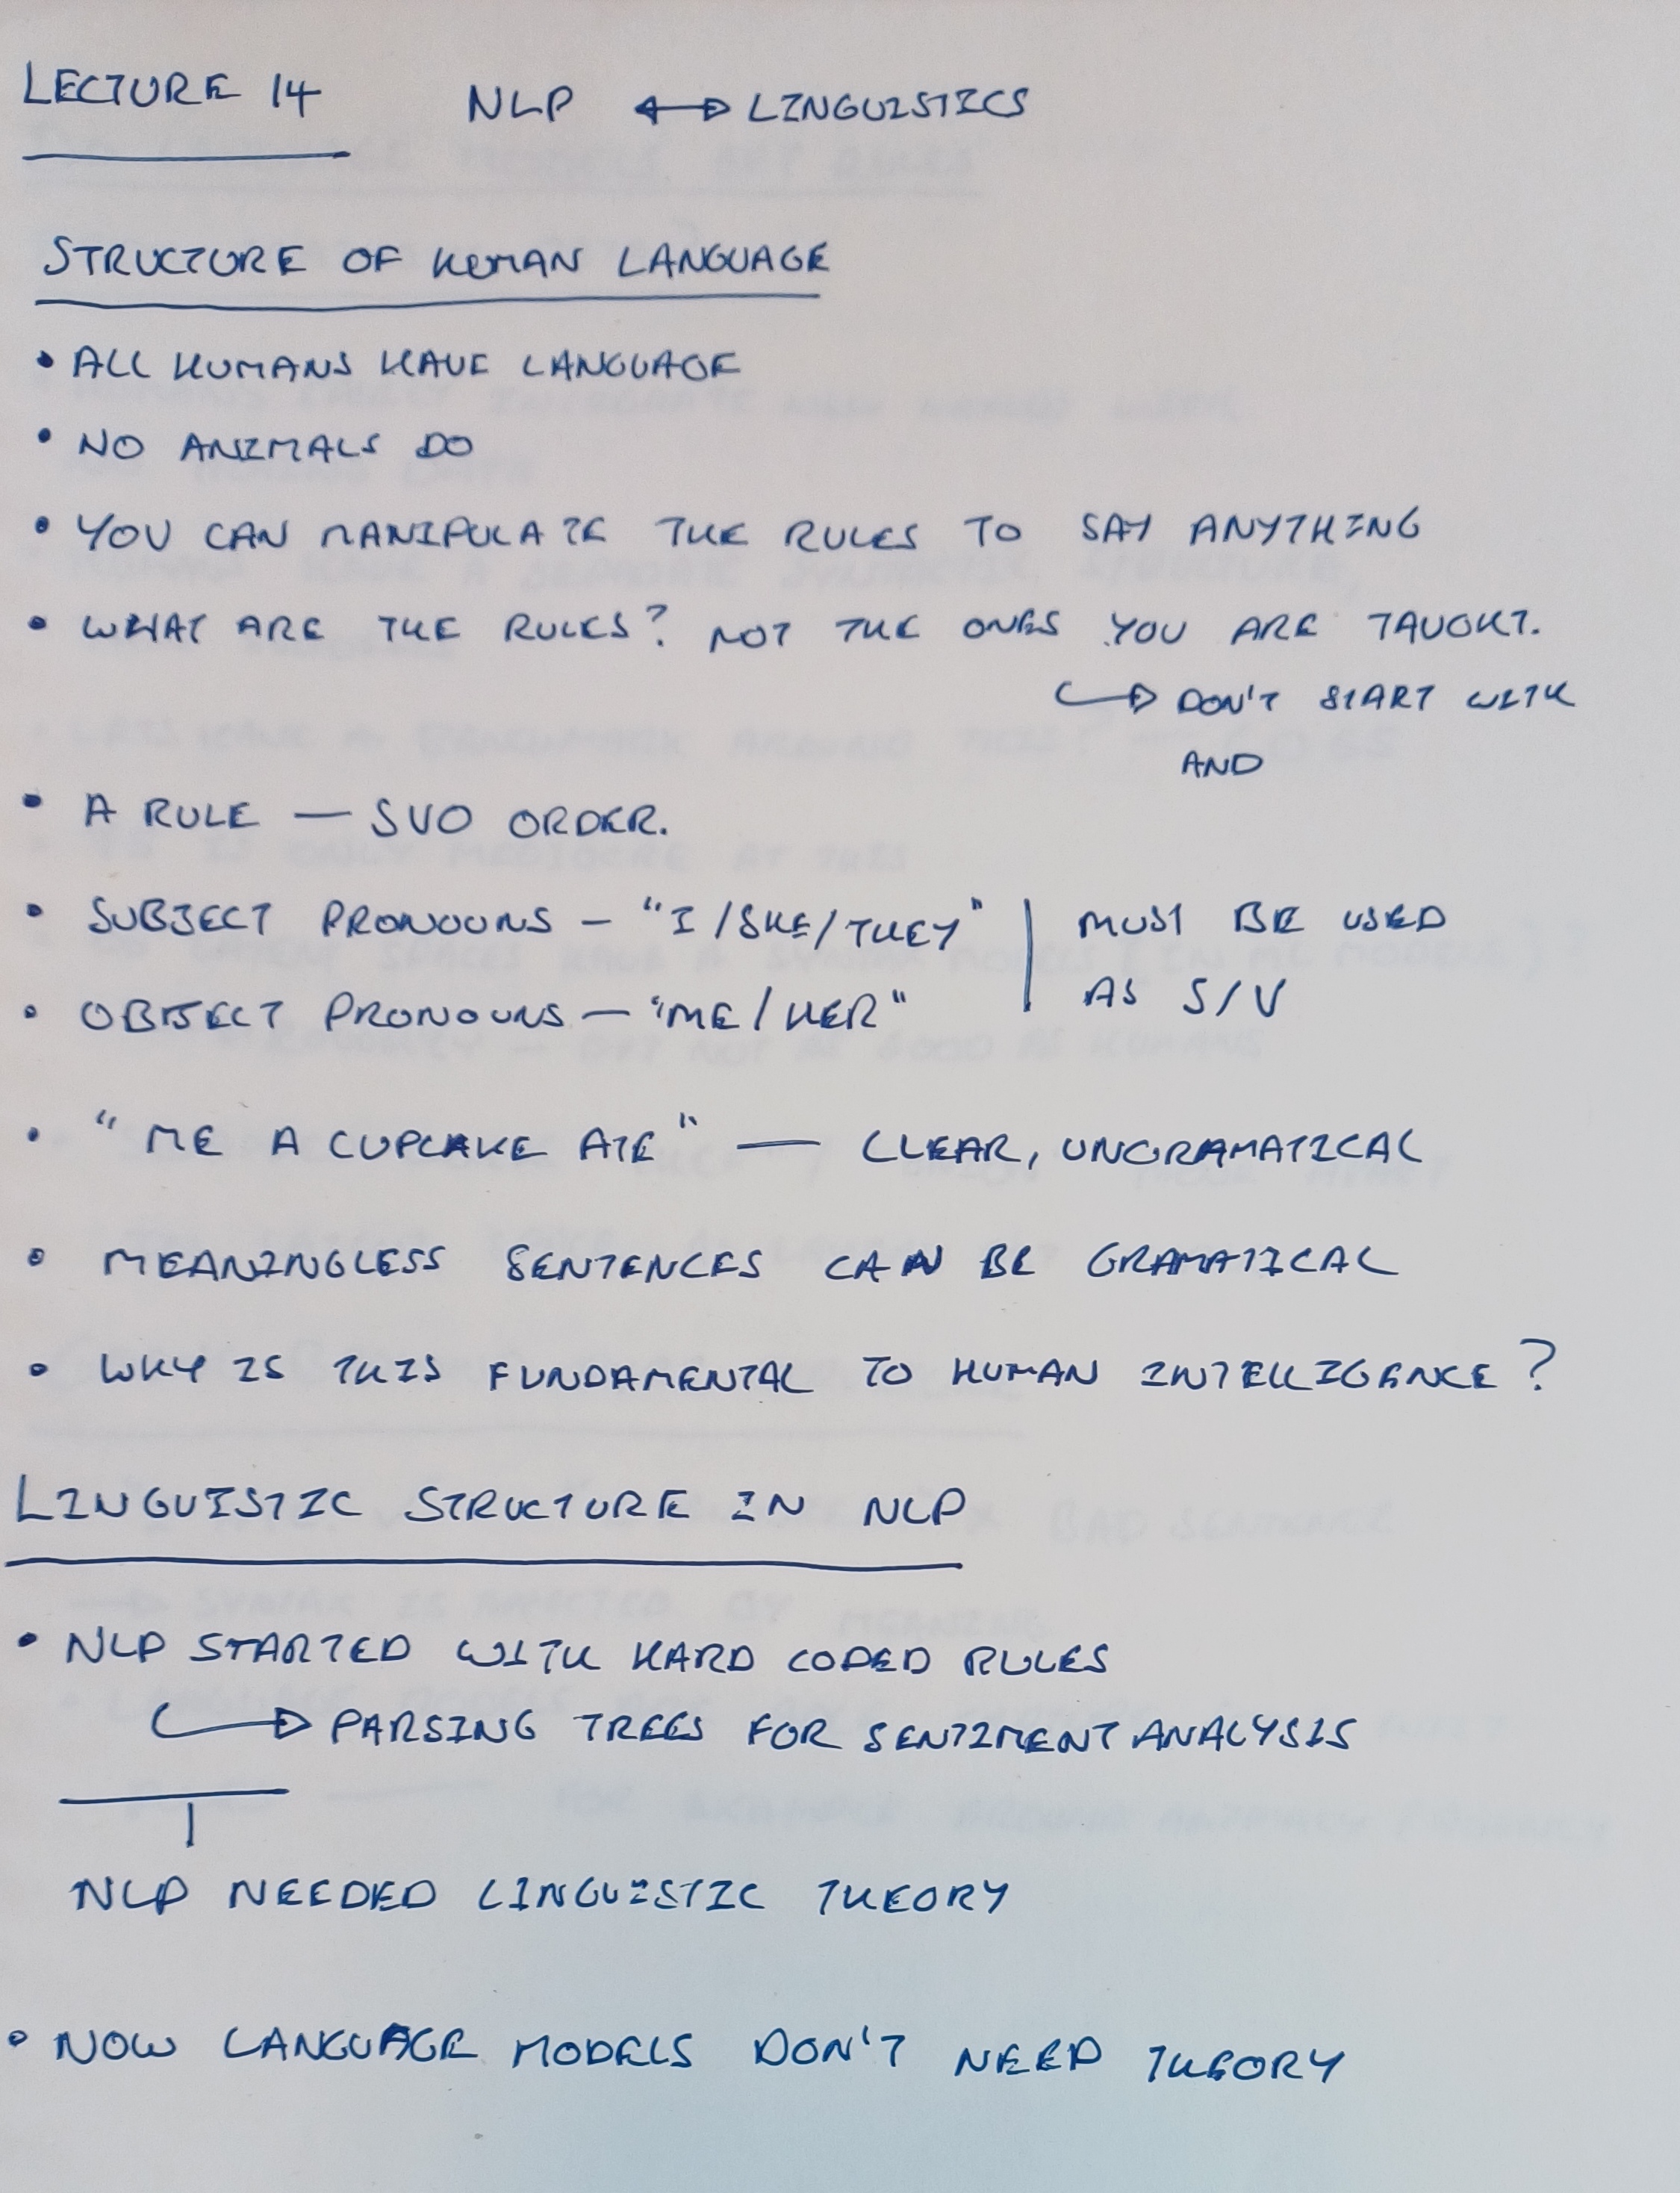 LECTURE 14 NLP ↔ LINGUISTICS
STRUCTURE OF HUMAN LANGUAGE
• ALL HUMANS HAVE LANGUAGE
• NO ANIMALS DO
• YOU CAN MANIPULATE THE RULES TO SAY ANYTHING
• WHAT ARE THE RULES? NOT THE ONES YOU ARE TAUGHT.
↪ DON'T START WITH
AND
• A RULE — SVO ORDER.
• SUBJECT PRONOUNS – "I/SHE/THEY" | MUST BE USED
• OBJECT PRONOUNS – "ME/HER" | AS S/V
• "ME A CUPCAKE ATE" — CLEAR, UNGRAMATICAL
• MEANINGLESS SENTENCES CAN BE GRAMATICAL
• WHY IS THIS FUNDAMENTAL TO HUMAN INTELLIGENCE?
LINGUISTIC STRUCTURE IN NLP
• NLP STARTED WITH HARD CODED RULES
↪ PARSING TREES FOR SENTIMENT ANALYSIS
NLP NEEDED LINGUISTIC THEORY
• NOW LANGUAGE MODELS DON'T NEED THEORY